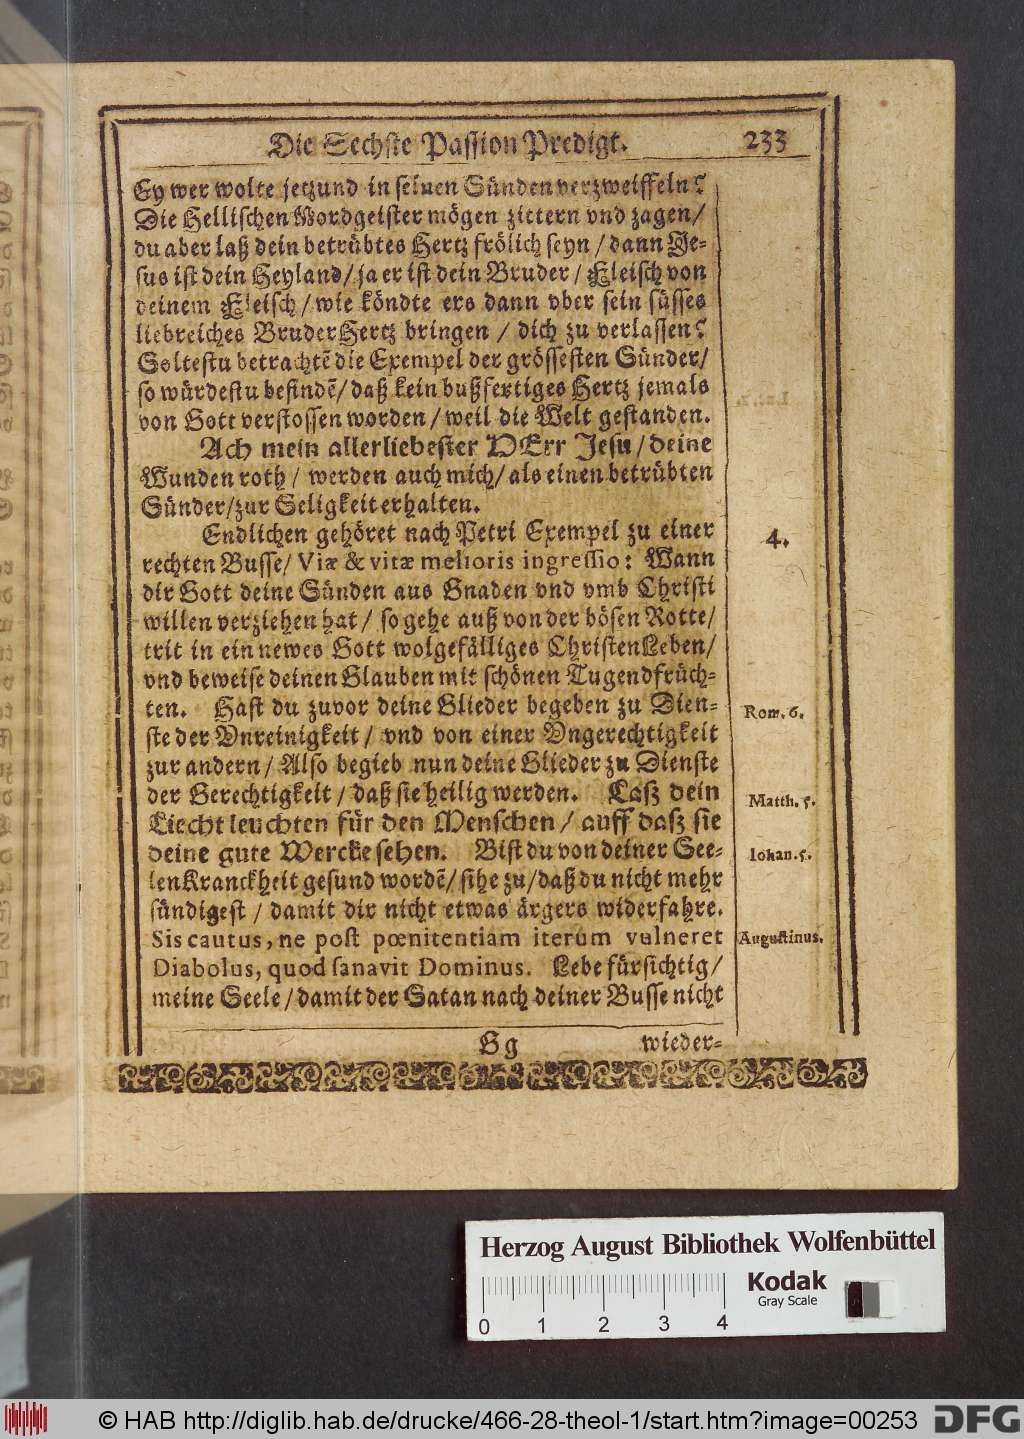 Die Sechste Passion Predigt. 233
Ey wer wolte jetzund in seinen Sünden verzweiffeln?
Die Hellischen Mordgeister mögen zittern vnd zagen/
du aber laß dein betrübtes Hertz frölich seyn / dann Je-
sus ist dein Heyland/ ja er ist dein Bruder / Fleisch von
deinem Fleisch / wie köndte ers dann vber sein süsses
liebreiches BruderHertz bringen / dich zu verlassen?
Soltestu betrachtē die Exempel der grössesten Sünder/
so würdestu befindē/ daß kein bußfertiges Hertz jemals
von Gott verstossen worden / weil die Welt gestanden.
Ach mein allerliebester HErr Jesu / deine
Wunden roth / werden auch mich/ als einen betrübten
Sünder/zur Seligkeit erhalten.
Endlichen gehöret nach Petri Exempel zu einer
4.
rechten Busse/ Viæ & vitæ melioris ingressio: Wann
dir Gott deine Sünden aus Gnaden vnd vmb Christi
willen verziehen hat / so gehe auß von der bösen Rotte/
trit in ein newes Gott wolgefälliges ChristenLeben/
vnd beweise deinen Glauben mit schönen Tugendfrüch-
ten. Hast du zuvor deine Glieder begeben zu Dien-
Rom. 6.
ste der Vnreinigkeit / vnd von einer Vngerechtigkeit
zur andern / Also begieb nun deine Glieder zu Dienste
der Gerechtigkeit / daß sie heilig werden. Laß dein
Matth. 5.
Liecht leuchten für den Menschen / auff daß sie
deine gute Wercke sehen. Bist du von deiner See-
Iohan. 5.
lenKranckheit gesund wordē/ sihe zu/daß du nicht mehr
sündigest / damit dir nicht etwas ärgers widerfahre.
Sis cautus, ne post pœnitentiam iterum vulneret
Augustinus.
Diabolus, quod sanavit Dominus. Lebe fürsichtig /
meine Seele / damit der Satan nach deiner Busse nicht
Gg wieder-
Herzog August Bibliothek Wolfenbüttel
Kodak
Gray Scale
0 1 2 3 4
© HAB http://diglib.hab.de/drucke/466-28-theol-1/start.htm?image=00253 DFG